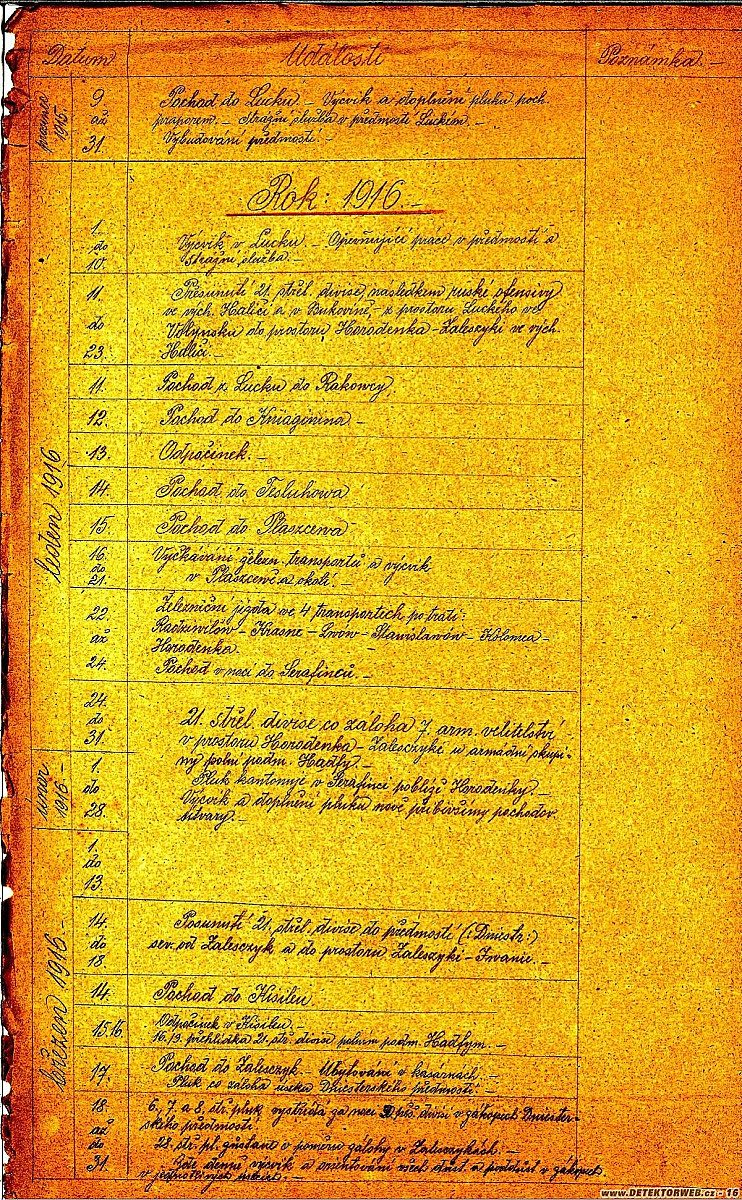 Datum Události Poznámka.-
prosinec 1915
9 Pochod do Lucku. - Výcvik a doplnění pluku poch.
až praporem. - Strážní služba v předmostí Luckém. -
31. Vybudování předmostí. -
Rok: 1916.-
leden 1916
1. Výcvik v Lucku. - Opevňující práce v předmostí a
do strážní služba. -
10.
11. Přesunutí 21. střel. divise, následkem ruské ofensivy
ve vých. Haliči a v Bukovině - z prostoru Luckého ve
do Volynsku do prostoru Horodenka - Zaleszyki ve vých.
23. Haliči. -
11. Pochod z Lucku do Rakowcy.
12. Pochod do Kniaginina -
13. Odpočinek. -
14. Pochod do Tesluhowa
15. Pochod do Plaszcewa
16. Vyčkávání železn. transportů a výcvik
do v Plaszcewě a okolí.
21.
22. Železniční jízda ve 4 transportech po trati:
až Radziwilów - Krasne - Lwów - Stanislawów - Kolomea -
Horodenka.
24. Pochod v noci do Serafinců. -
24. 21. střel. divise co záloha 7. arm. velitelství
do v prostoru Horodenka - Zalesczyki u armádní skupi-
31. ny polní podm. Hadfy. -
únor 1916 -
1. Pluk kantonuje v Serafinci poblíže Horodenky. -
do Výcvik a doplnění pluku nově přibévšímy pochodov.
28. útvary. -
březen 1916 -
1.
do
13.
14. Posunutí 21. střel. divise do předmostí (: Dniestr :)
do sev. od Zalesczyk a do prostoru Zaleszyki - Iwanie. -
18.
14. Pochod do Kisileu.
15.16. Odpočinek v Kisileu. -
16./3. přehlídka 21. stř. divise polním podm. Hadfym. -
17. Pochod do Zalesczyk. - Ubytování v kasárnách. -
Pluk co záloha úseku Dniesterského předmostí. -
18. 6., 7. a 8. stř. pluk vystřídá za noci 3. pěš. divisi v zákopech Dniester-
až ského předmostí.
do 28. stř. pl. zůstane v poměru zálohy v Zalesczykách. -
31. denní výcvik a orientování všech důst. a poddůst. v zákopech
v jednotlivých úsecích. -
www.DETEKTORWEB.cz - 16